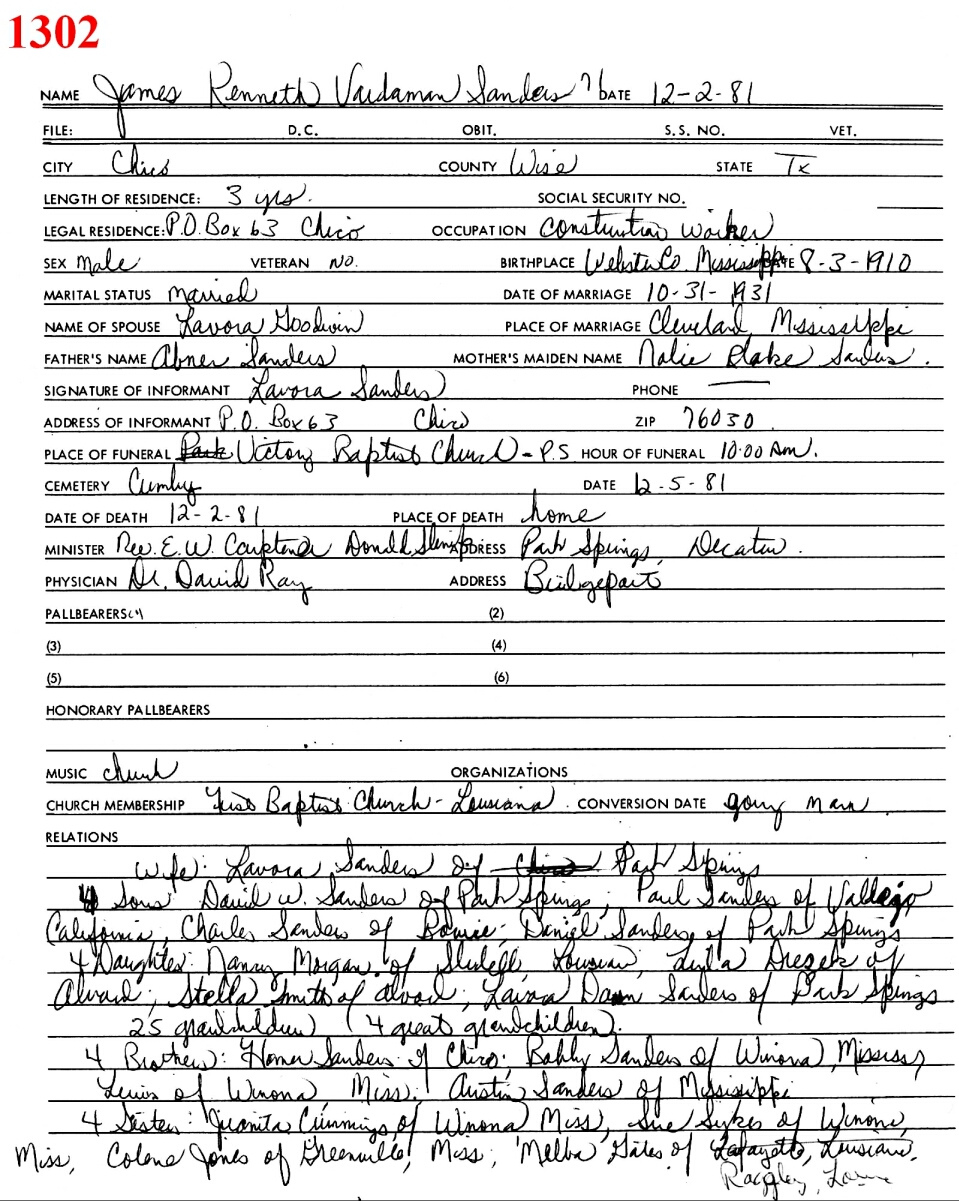 1302
NAME James Kenneth Vardaman Sanders DATE 12-2-81
FILE: D.C. OBIT. S.S. NO. VET.
CITY Chico COUNTY Wise STATE Tx
LENGTH OF RESIDENCE: 3 yrs. SOCIAL SECURITY NO.
LEGAL RESIDENCE: P.O. Box 63 Chico OCCUPATION Construction Worker
SEX Male VETERAN NO. BIRTHPLACE Webster Co. Mississippi DATE 8-3-1910
MARITAL STATUS Married DATE OF MARRIAGE 10-31-1931
NAME OF SPOUSE Lavora Goodwin PLACE OF MARRIAGE Cleveland, Mississippi
FATHER'S NAME Abner Sanders MOTHER'S MAIDEN NAME Blake Sanders.
SIGNATURE OF INFORMANT Lavora Sanders PHONE
ADDRESS OF INFORMANT P.O. Box 63 Chico ZIP 76030
PLACE OF FUNERAL Park Victory Baptist Church - P.S HOUR OF FUNERAL 10:00 Am.
CEMETERY Cumby DATE 12-5-81
DATE OF DEATH 12-2-81 PLACE OF DEATH home
MINISTER Rev. E.W. Donald ADDRESS Park Springs, Decatur.
PHYSICIAN Dr. David Ray ADDRESS Bridgeport
PALLBEARERS (1) (2)
(3) (4)
(5) (6)
HONORARY PALLBEARERS
MUSIC church ORGANIZATIONS
CHURCH MEMBERSHIP First Baptist Church - Lousiana. CONVERSION DATE man
RELATIONS
Wife: Lavora Sanders of Chico Park Springs
4 Sons: David W. Sanders of Park Springs; Paul Sanders of Vallejo
California; Charles Sanders of Bowie; Daniel Sanders of Park Springs
4 Daughters: Nancy Morgan of Slidell, Lousiana; of
Alvord; Stella Smith of Alvord; Lavora Dawn Sanders of Park Springs
25 grandchildren) (4 great grandchildren).
4 Brothers: Homer Sanders of Chico; Bobby Sanders of Winona, Mississ,
Lewis of Winona, Miss; Austin Sanders of Mississippi
4 Sisters: Juanita Cummings of Winona Miss, Sue Sykes of Winona,
Miss, Colene Jones of Greenville, Miss; Melba Gates of Lafayette, Lousiana.